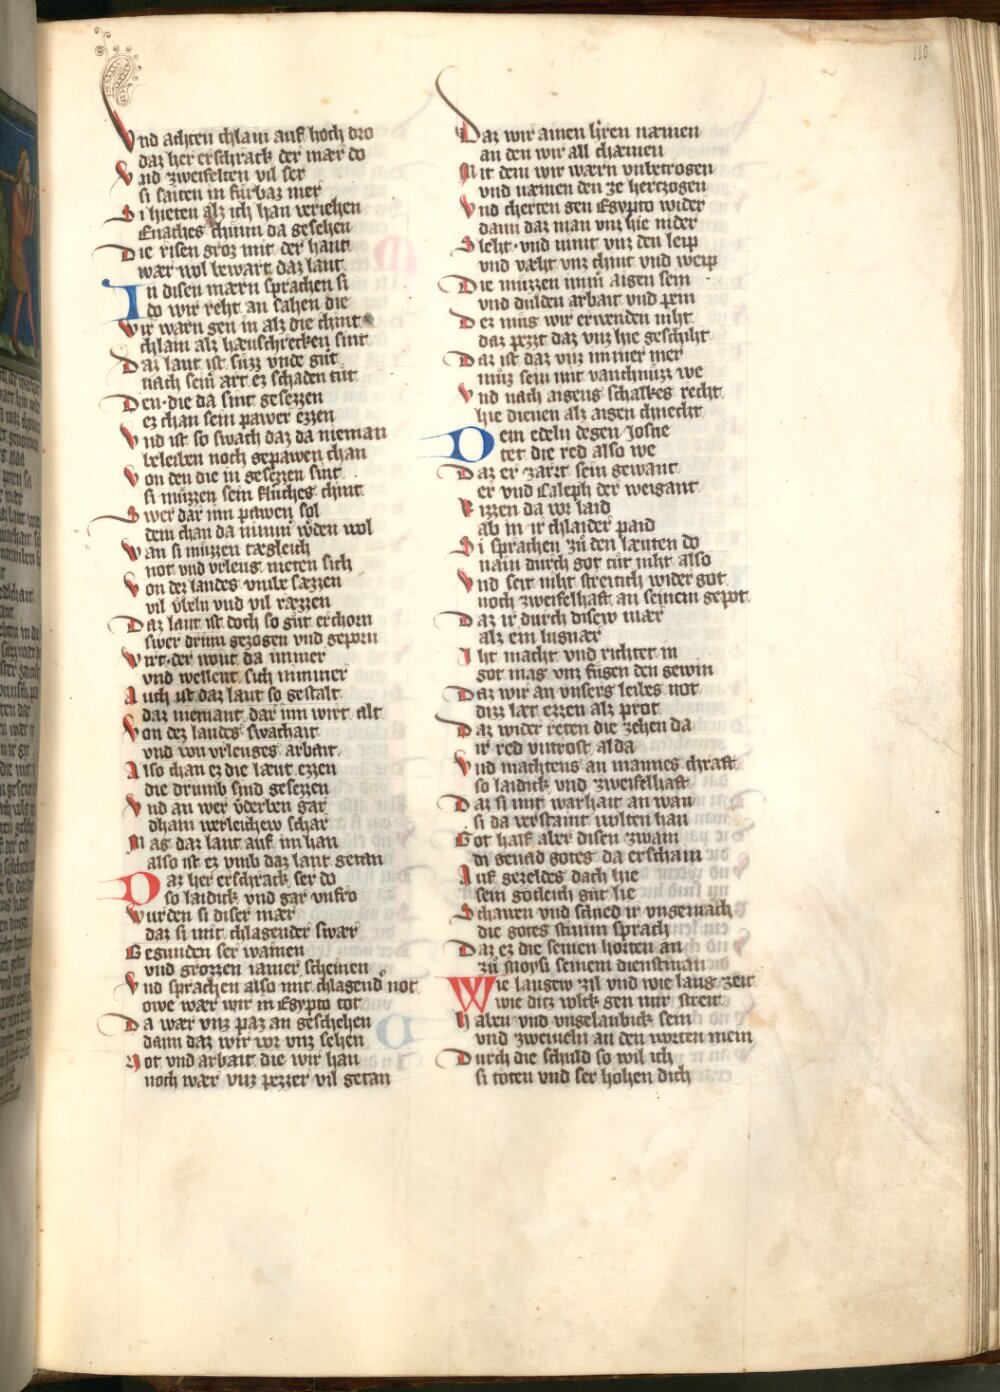 110
Vnd achten chlain auf hoch dro
daz her erschrack der mær do
Vnd zweifelten vil ser
si sæiten in fürbaz mer
Si hieten alz ich han veriehen
Enaches chünn da gesehen
Die risen groz mit der hant
wær wol bewart daz lant
In disen mærn sprachen si
do wir reht an sahen die
Wir warn gen in alz die chint
chlain alz hæuschrecken sint
Daz lant ist süzz vnde gut
nach seiner art ez schaden tut
Den die da sint gesezzen
ez chan sein pawer ezzen
Vnd ist so swach daz da nieman
beleiben noch gepawen chan
Von den die in gesezzen sint
si müzzen sein fluches chint
Swer dar inn pawen sol
dem chan da nimmer werden wol
Wan si müzzen tægleich
not vnd vrleug nieten sich
Von dez landes vmbe sæzzen
vil vbeln vnd vil ræzzen
Daz lant ist doch so gut erchorn
swer drinn gezogen vnd geporn
Wirt der wont da immer
vnd wellent sich nimmer
Auch ist daz lant so gestalt
daz niemant dar inn wirt alt
Von dez landes swachait
vnd von vrleuges arbait
Also chan ez die læut ezzen
die drumb sind gesezzen
Vnd an wer verderben gar
dhain werleichew schar
Mag daz lant auf im han
also ist ez vmb daz lant getan
Daz her erschrack ser do
so laidick vnd gar vnfro
Wurden si diser mær
daz si mit chlagender swær
Begunden ser wainen
vnd grozzen iamer scheinen
Vnd sprachen also mit chlagender not
owe wær wir in Egypto tot
Da wær vnz paz an geschehen
dann daz wir vor vnz sehen
Not vnd arbait die wir han
noch wær vnz pezzer vil getan
Daz wir ainen herren næmen
an den wir all chæmen
Mit dem wir wærn vnbetrogen
vnd næmen den ze hertzogen
Vnd cherten gen Egypto wider
dann daz man vnz hie nider
Sleht vnd nimt vnz den leip
vnd væht vnz chint vnd weip
Die müzzen imm aigen sein
vnd dulden arbait vnd pein
Dez müg wir erwenden niht
daz pezzt daz vnz hie geschiht
Daz ist daz vnz immer mer
müz sein mit vanchnüzz we
Vnd nach aigens schalkes recht
hie dienen alz aigen chnecht
Dem edeln degen Josue
tet die red also we
Daz er zarrt sein gewant
er vnd Caleph der weigant
Rizzen da vor laid
ab in ir chlaider paid
Si sprachen zu den læuten do
nain durch got tut niht also
Vnd seit niht streitich wider got
noch zweifelhaft an seinem gepot
Daz ir durch disew mær
alz ein lugnær
Iht macht vnd richtet in
got mag vnz fügen den gewin
Daz wir an vnsers leibes not
ditz læt ezzen alz prot
Daz wider reten die zehen da
ir red vntrost alda
Vnd machtens an mannes chraft
so laidick vnd zweifelhaft
Daz si mit warhait an wan
si da verstaint wolten han
Got half aber disen zwain
di genad gotes da erschain
Auf gezeldes dach hie
sein gotleich güt lie
Schawen vnd schied ir vngemach
die gotes stimm sprach
Daz ez die seinen horten an
zu Moysi seinem dienstman
Wie langew zil vnd wie lang zeit
wie ditz volck gen mir streit
Haben vnd vngelaubick sein
vnd zweiueln an den worten mein
Durch die schuld so wil ich
si toten vnd ser hohen dich